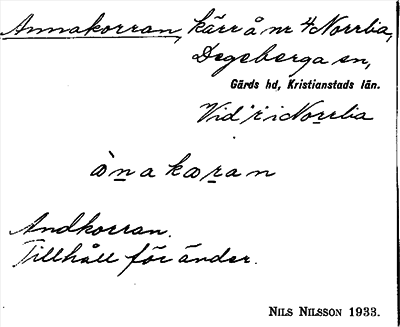 Annakorran, kärr å nr 4 Norrlia,
Degeberga sn,
Gärds hd, Kristianstads län.
Vid "r" i Norrlia
Andkorran.
Tillhåll för änder.
NILS NILSSON 1933.